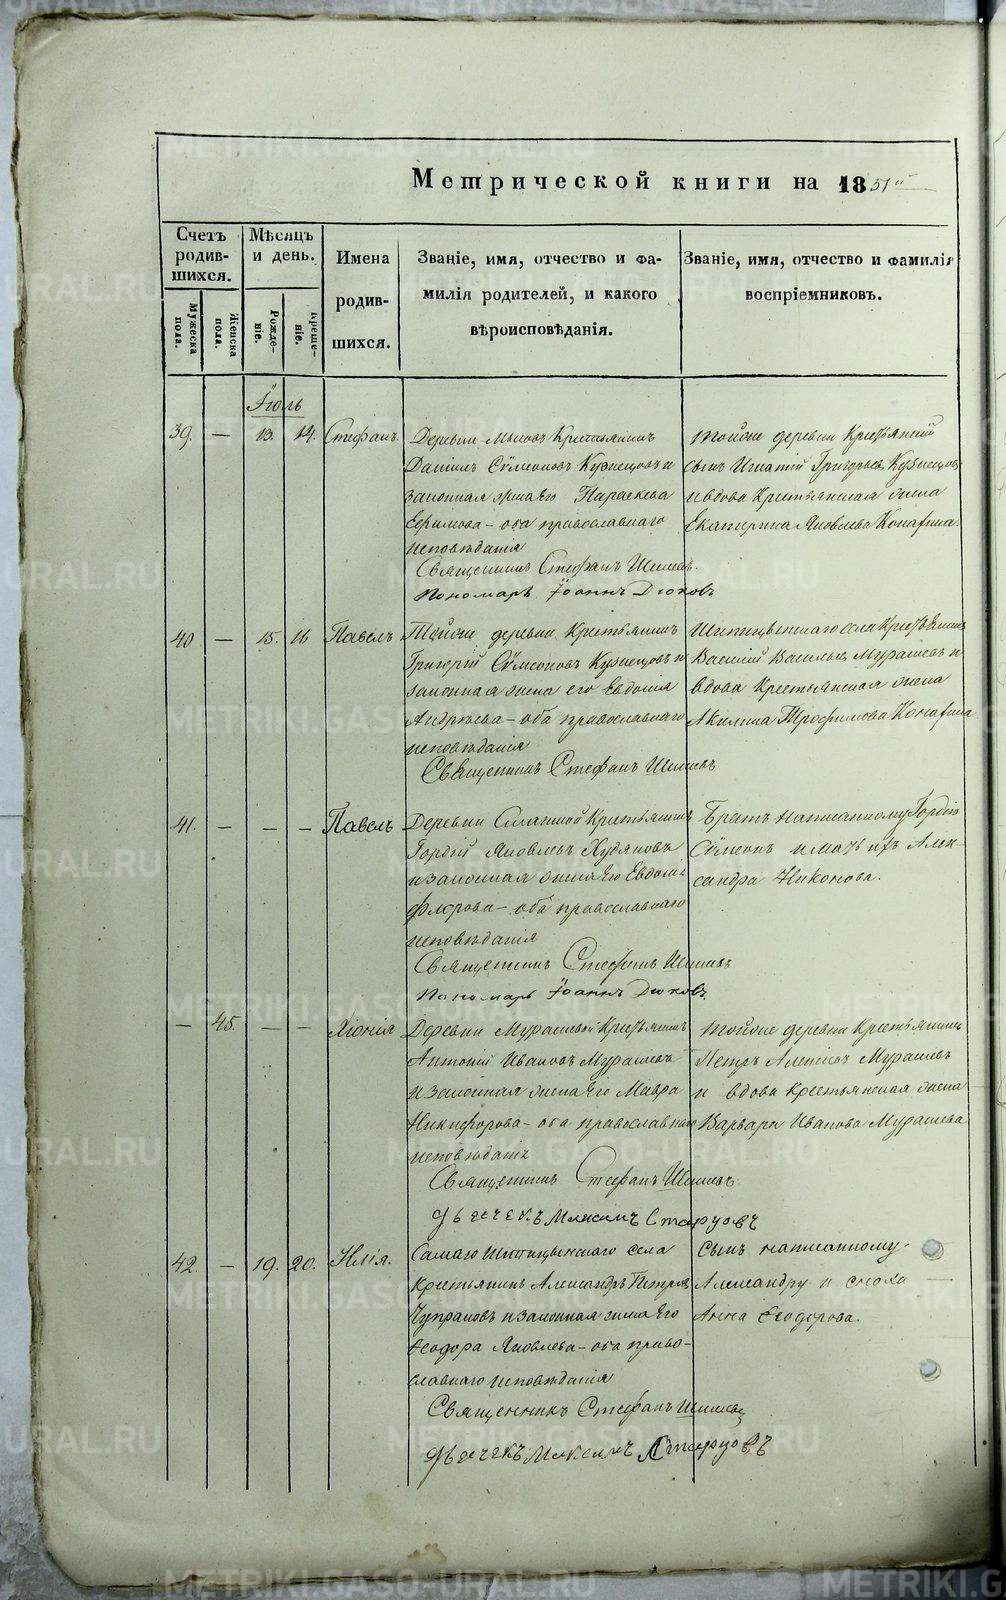 Метрической книги на 1851й
Счетъ родив-шихся.
Мѣсяцъ и день.
Имена родив-шихся.
Званіе, имя, отчество и фа-милія родителей, и какого вѣроисповѣданія.
Званіе, имя, отчество и фамилія воспріемниковъ.
Мужеска пола.
Женска пола.
Рожде-ніе.
Креще-ніе.
Іюль
39. — 13. 14. Стефанъ.
Деревни Крестьянинъ
Даніилъ Сѵмеоновъ Кузнецовъ и
законная жена его Параскева
Ефимова – оба православнаго
исповѣданія
Священникъ Стефанъ
Пономарь Іоаннъ Дюковъ
тойже деревни Крестьянскій
сынъ Игнатій Григорьевъ Кузнецовъ
и вдова Крестьянская жена
Екатерина Яковлева
40 — 15. 16 Павелъ
Тойже деревни Крестьянинъ
Григорій Сѵмеоновъ Кузнецовъ и
законная жена его Евдокія
Андреева – оба православнаго
исповѣданія
Священникъ Стефанъ
села Крестьянинъ
Василій Васильевъ Мурашевъ и
вдова Крестьянская жена
Акилина Трофимова
41. — — — Павелъ
Деревни Крестьянинъ
Гордій Яковлевъ Худяковъ
и законная жена его Евдокія
Флорова – оба православнаго
исповѣданія
Священникъ Стефанъ
Пономарь Іоаннъ Дюковъ.
Братъ написанному Гордію
Сѵмеонъ и мать ихъ Алек-
сандра Никонова.
— 45. — — Хіонія
Деревни Мурашевой Крестьянинъ
Антоній Ивановъ Мурашевъ
и законная жена его Мавра
Никифорова – оба православнаго
исповѣданія
Священникъ Стефанъ
Дьячекъ Максимъ Старцовъ
тойже деревни Крестьянинъ
Петръ Алексіевъ Мурашевъ
и вдова Крестьянская жена
Варвара Иванова Мурашева
42. — 19. 20. Илія.
Самаго села
Крестьянинъ Александръ Петровъ
и законная жена его
Ѳеодора Яковлева – оба право-
славнаго исповѣданія
Священникъ Стефанъ
Дьячекъ Максимъ Старцовъ
Сынъ написанному
Александру и сноха
Анна Ѳеодорова.
METRIKI.GASO-URAL.RU